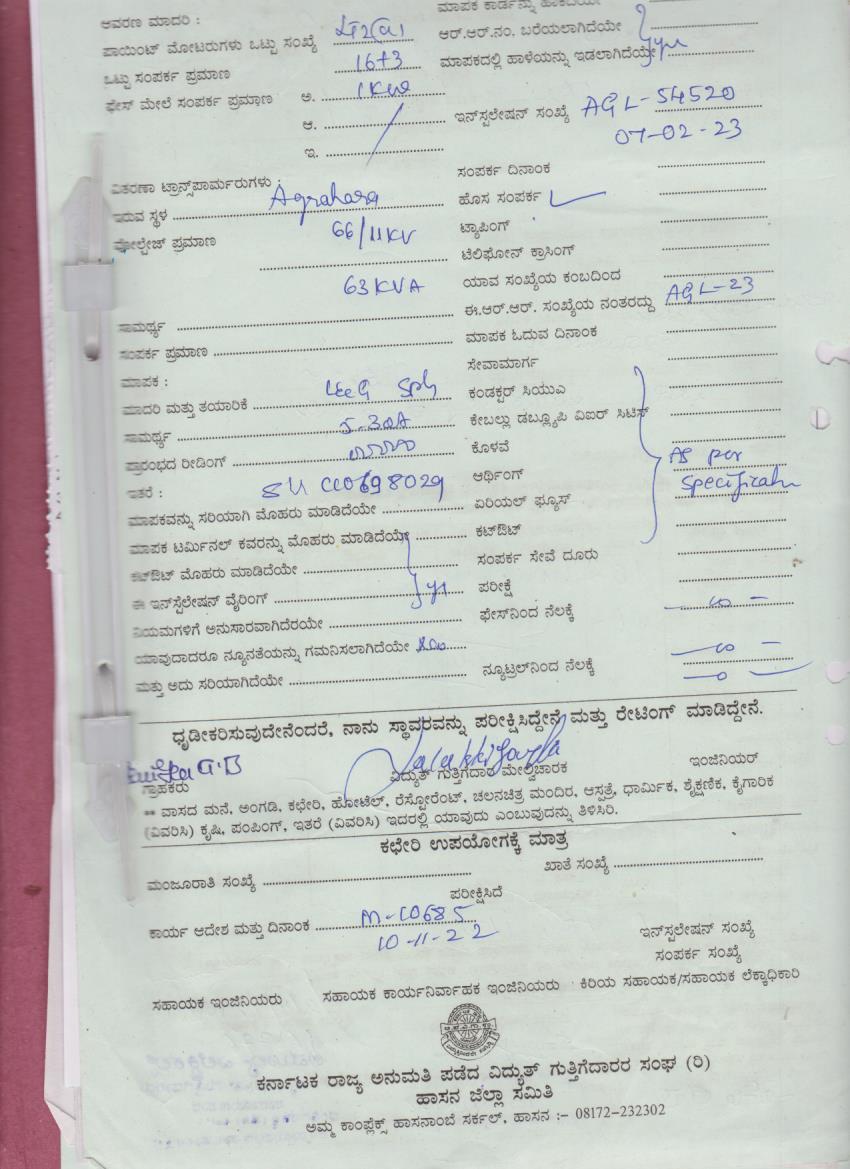 ಮಾಪಕ ಕಾರ್ಡನ್ನು ಹಾಕಿದೆಯೇ
ಆವರಣ ಮಾದರಿ : LT2(a) ಆರ್.ಆರ್.ನಂ. ಬರೆಯಲಾಗಿದೆಯೇ
ಪಾಯಿಂಟ್ ಮೋಟರುಗಳು ಒಟ್ಟು ಸಂಖ್ಯೆ 16+3 ಮಾಪಕದಲ್ಲಿ ಹಾಳೆಯನ್ನು ಇಡಲಾಗಿದೆಯೇ yes
ಒಟ್ಟು ಸಂಪರ್ಕ ಪ್ರಮಾಣ 1KW
ಫೇಸ್ ಮೇಲೆ ಸಂಪರ್ಕ ಪ್ರಮಾಣ ಅ. ಇನ್‌ಸ್ಪಲೇಷನ್ ಸಂಖ್ಯೆ AGL-54520
ಆ. 07-02-23
ಇ. ಸಂಪರ್ಕ ದಿನಾಂಕ
ವಿತರಣಾ ಟ್ರಾನ್ಸ್‌ಪಾರ್ಮರುಗಳು : ಹೊಸ ಸಂಪರ್ಕ
ಇರುವ ಸ್ಥಳ Agrahara ಟ್ಯಾಪಿಂಗ್
ವೋಲ್ಟೇಜ್ ಪ್ರಮಾಣ 66/11KV ಟೆಲಿಫೋನ್ ಕ್ರಾಸಿಂಗ್
63KVA ಯಾವ ಸಂಖ್ಯೆಯ ಕಂಬದಿಂದ
ಸಾಮರ್ಥ್ಯ ಈ.ಆರ್.ಆರ್. ಸಂಖ್ಯೆಯ ನಂತರದ್ದು AGL-23
ಸಂಪರ್ಕ ಪ್ರಮಾಣ ಮಾಪಕ ಓದುವ ದಿನಾಂಕ
ಮಾಪಕ : ಸೇವಾಮಾರ್ಗ
ಮಾದರಿ ಮತ್ತು ತಯಾರಿಕೆ ಕಂಡಕ್ಟರ್ ಸಿಯುಎ
ಸಾಮರ್ಥ್ಯ 5-30A ಕೇಬಲ್ಲು ಡಬ್ಲ್ಯೂಪಿ ವಿಐರ್ ಸಿಟಿಸ್
ಪ್ರಾರಂಭದ ರೀಡಿಂಗ್ ಕೊಳವೆ
ಇತರೆ : ಆರ್ಥಿಂಗ್ As per
ಮಾಪಕವನ್ನು ಸರಿಯಾಗಿ ಮೊಹರು ಮಾಡಿದೆಯೇ ಏರಿಯಲ್ ಫ್ಯೂಸ್
ಮಾಪಕ ಟರ್ಮಿನಲ್ ಕವರನ್ನು ಮೊಹರು ಮಾಡಿದೆಯೇ ಕಟ್‌ಔಟ್
ಕಟ್‌ಔಟ್ ಮೊಹರು ಮಾಡಿದೆಯೇ ಸಂಪರ್ಕ ಸೇವೆ ದೂರು
ಈ ಇನ್‌ಸ್ಪೆಲೇಷನ್ ವೈರಿಂಗ್ ಪರೀಕ್ಷೆ
ನಿಯಮಗಳಿಗೆ ಅನುಸಾರವಾಗಿದೆರಯೇ ಫೇಸ್‌ನಿಂದ ನೆಲಕ್ಕೆ
ಯಾವುದಾದರೂ ನ್ಯೂನತೆಯನ್ನು ಗಮನಿಸಲಾಗಿದೆಯೇ
ಮತ್ತು ಅದು ಸರಿಯಾಗಿದೆಯೇ ನ್ಯೂಟ್ರಲ್‌ನಿಂದ ನೆಲಕ್ಕೆ
ಧೃಡೀಕರಿಸುವುದೇನೆಂದರೆ, ನಾನು ಸ್ಥಾವರವನ್ನು ಪರೀಕ್ಷಿಸಿದ್ದೇನೆ ಮತ್ತು ರೇಟಿಂಗ್ ಮಾಡಿದ್ದೇನೆ.
ಗ್ರಾಹಕರು ವಿದ್ಯುತ್ ಗುತ್ತಿಗೆದಾರ ಮೇಲ್ವಿಚಾರಕ ಇಂಜಿನಿಯರ್
** ವಾಸದ ಮನೆ, ಅಂಗಡಿ, ಕಛೇರಿ, ಹೋಟೆಲ್, ರೆಸ್ಟೋರೆಂಟ್, ಚಲನಚಿತ್ರ ಮಂದಿರ, ಆಸ್ಪತ್ರೆ, ಧಾರ್ಮಿಕ, ಶೈಕ್ಷಣಿಕ, ಕೈಗಾರಿಕ
(ವಿವರಿಸಿ) ಕೃಷಿ, ಪಂಪಿಂಗ್, ಇತರೆ (ವಿವರಿಸಿ) ಇದರಲ್ಲಿ ಯಾವುದು ಎಂಬುವುದನ್ನು ತಿಳಿಸಿರಿ.
ಕಛೇರಿ ಉಪಯೋಗಕ್ಕೆ ಮಾತ್ರ
ಮಂಜೂರಾತಿ ಸಂಖ್ಯೆ ಖಾತೆ ಸಂಖ್ಯೆ
ಪರೀಕ್ಷಿಸಿದೆ
ಕಾರ್ಯ ಆದೇಶ ಮತ್ತು ದಿನಾಂಕ
10-11-22 ಇನ್‌ಸ್ಪಲೇಷನ್ ಸಂಖ್ಯೆ
ಸಂಪರ್ಕ ಸಂಖ್ಯೆ
ಸಹಾಯಕ ಇಂಜಿನಿಯರು ಸಹಾಯಕ ಕಾರ್ಯನಿರ್ವಾಹಕ ಇಂಜಿನಿಯರು ಕಿರಿಯ ಸಹಾಯಕ/ಸಹಾಯಕ ಲೆಕ್ಕಾಧಿಕಾರಿ
ಕರ್ನಾಟಕ ರಾಜ್ಯ ಅನುಮತಿ ಪಡೆದ ವಿದ್ಯುತ್ ಗುತ್ತಿಗೆದಾರರ ಸಂಘ (ರಿ)
ಹಾಸನ ಜಿಲ್ಲಾ ಸಮಿತಿ
ಅಮ್ಮ ಕಾಂಪ್ಲೆಕ್ಸ್ ಹಾಸನಾಂಬೆ ಸರ್ಕಲ್, ಹಾಸನ :– 08172–232302